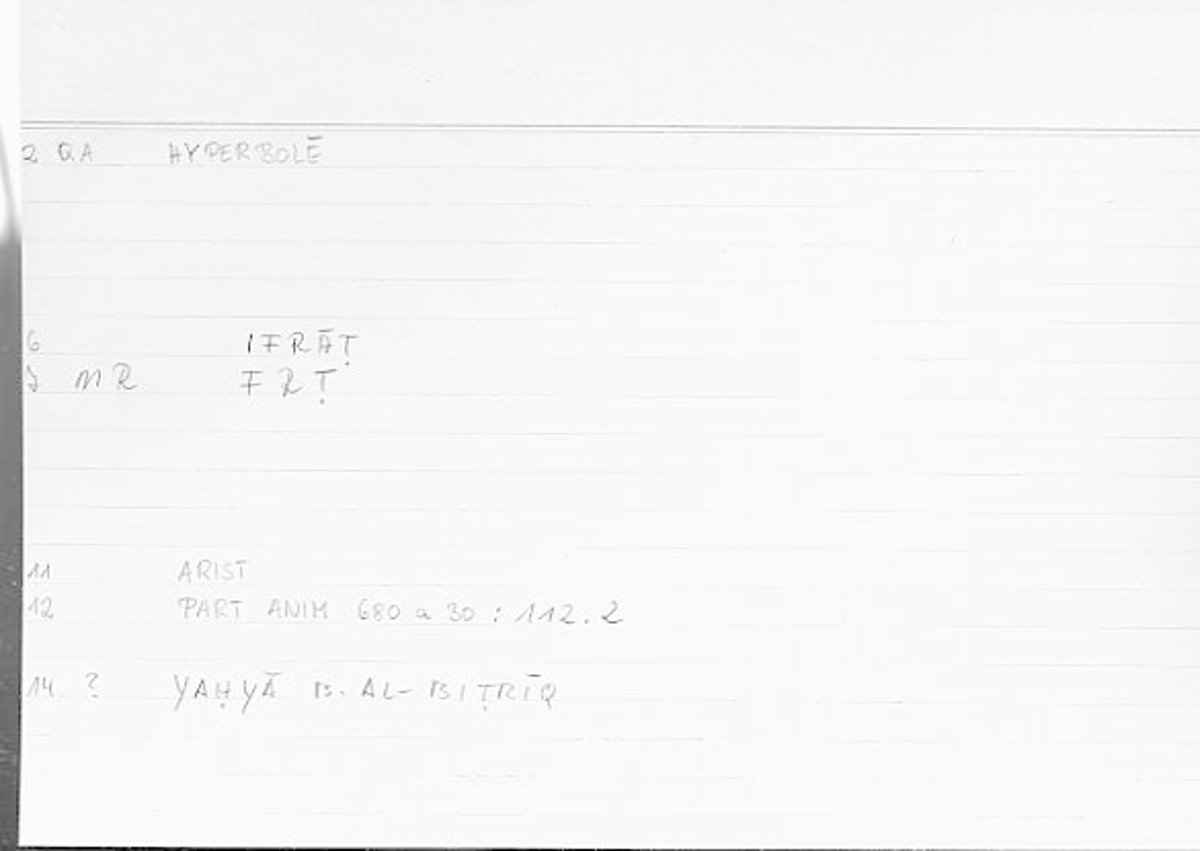 2 QA HYPERBOLĒ
6 IFRĀṬ
MR FRṬ
11 ARIST
12 PART ANIM 680 a 30 : 112.2
14 ? YAḤYĀ B. AL-BIṬRĪQ